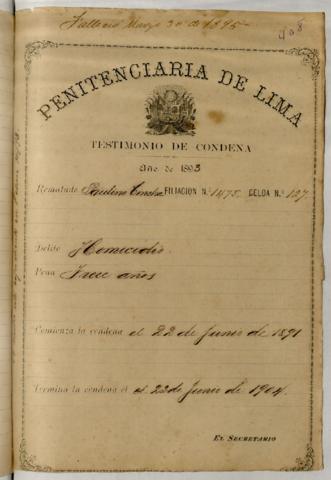 Falleció Marzo 30 de 1895
408
PENITENCIARIA DE LIMA
TESTIMONIO DE CONDENA
Año de 1893
Rematado FILIACION N.º 1475. CELDA N.º 127
Delito Homecidio.
Pena Trece años
Comienza la condena el 22 de Junio de 1891
Termina la condena el el 22 de Junio de 1904.
EL SECRETARIO